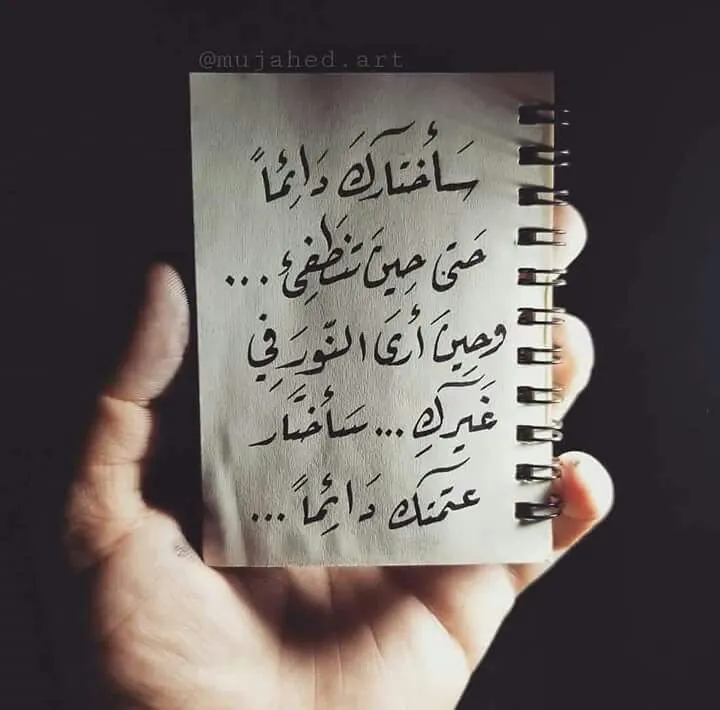 @mujahed.art
سَأَختارَكَ دَائِماً
حَتىٰ حِينَ تَنطَفِئ ...
وحِينَ أَرىَ النّورَ فِي
غَيرِكِ ... سَأَختَار
عتمتك دَائِماً ...